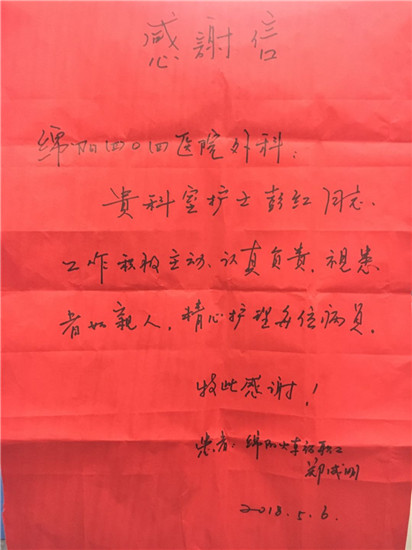 感謝信
绵阳四〇四医院外科:
贵科室护士彭红同志、
工作积极主动、认真负责,視患
者如親人,精心护理每位病员,
特此感谢!
患者:绵阳火车站职工
郑成明
2018.5.6.